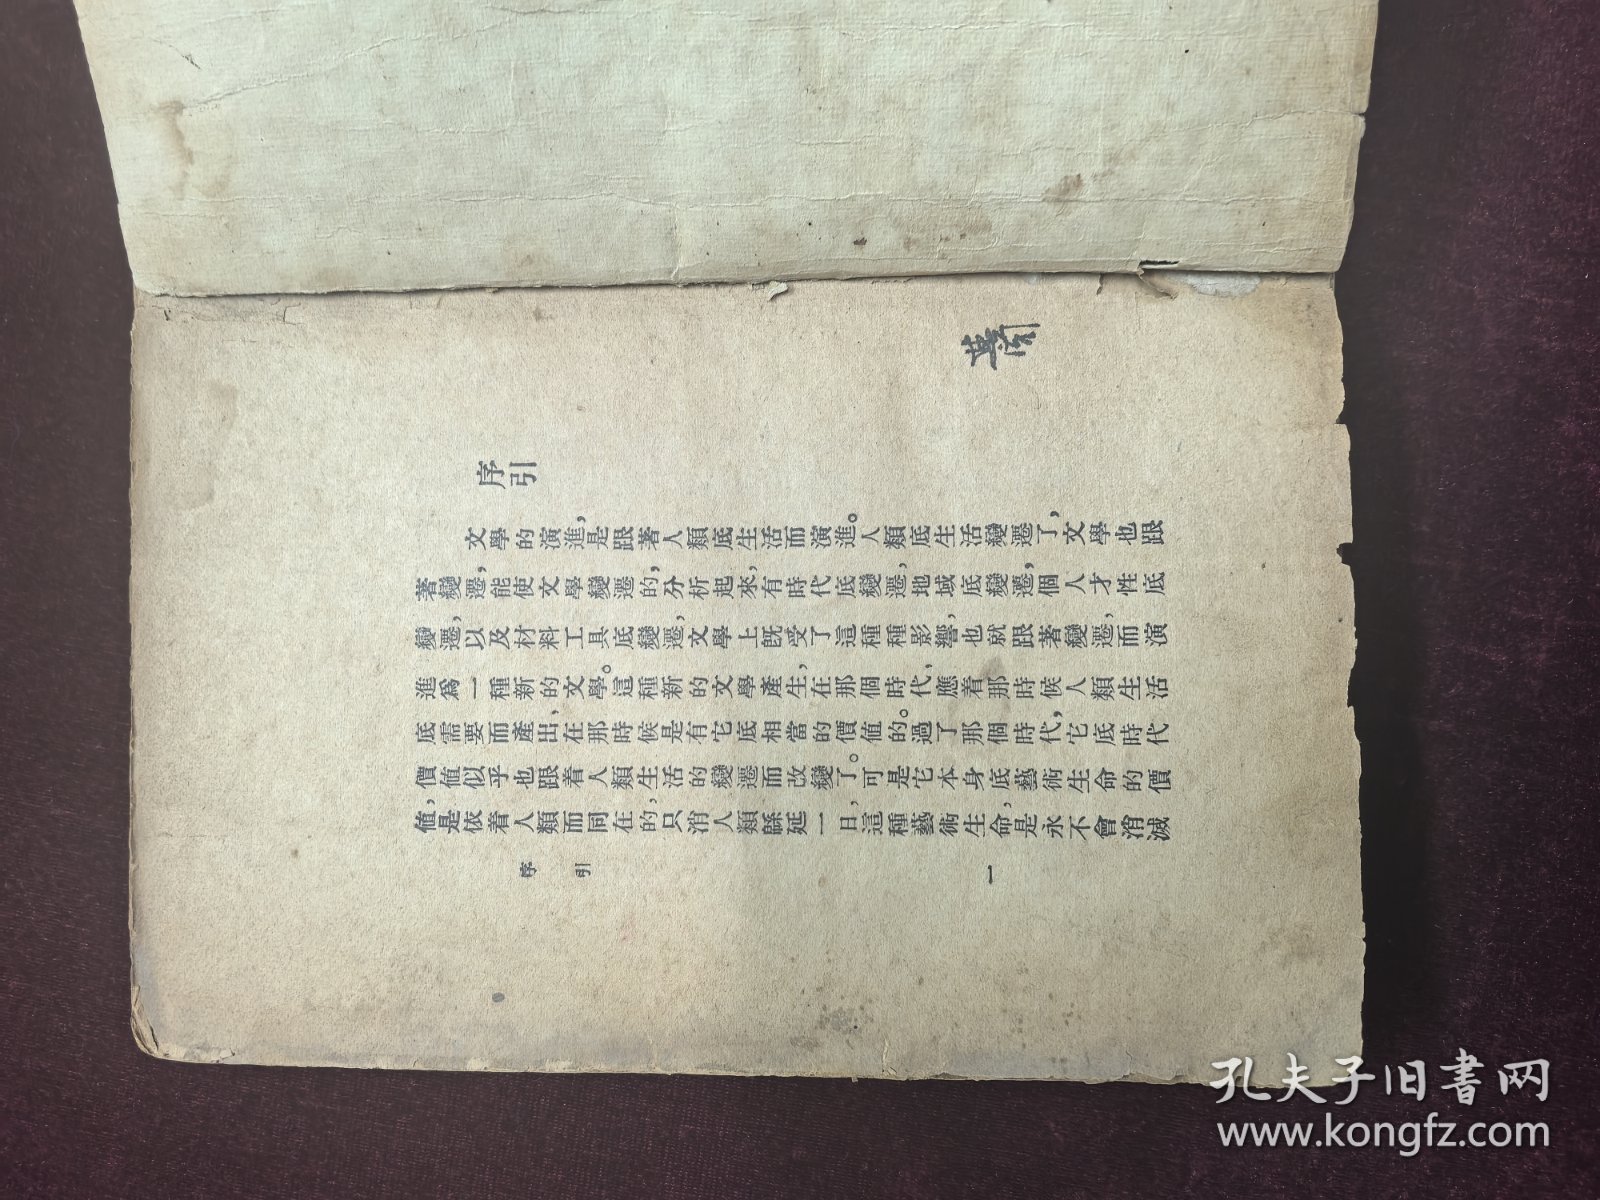 序引
文學的演進，是跟著人類底生活而演進。人類底生活變遷了，文學也跟
著變遷，能使文學變遷的，分析起來，有時代底變遷，地域底變遷，個人才性底
變遷，以及材料工具底變遷，文學上旣受了這種種影響，也就跟著變遷，而演
進爲一種新的文學。這種新的文學產生，在那個時代，應着那時候人類生活
底需要而產出，在那時候是有它底相當的價値的。過了那個時代，它底時代
價値似乎也跟着人類生活的變遷而改變了。可是它本身底藝術生命的價
値，是依着人類而同在的，只消人類緜延一日，這種藝術生命，是永不會消滅
序引
一
孔夫子旧書网
www.kongfz.com